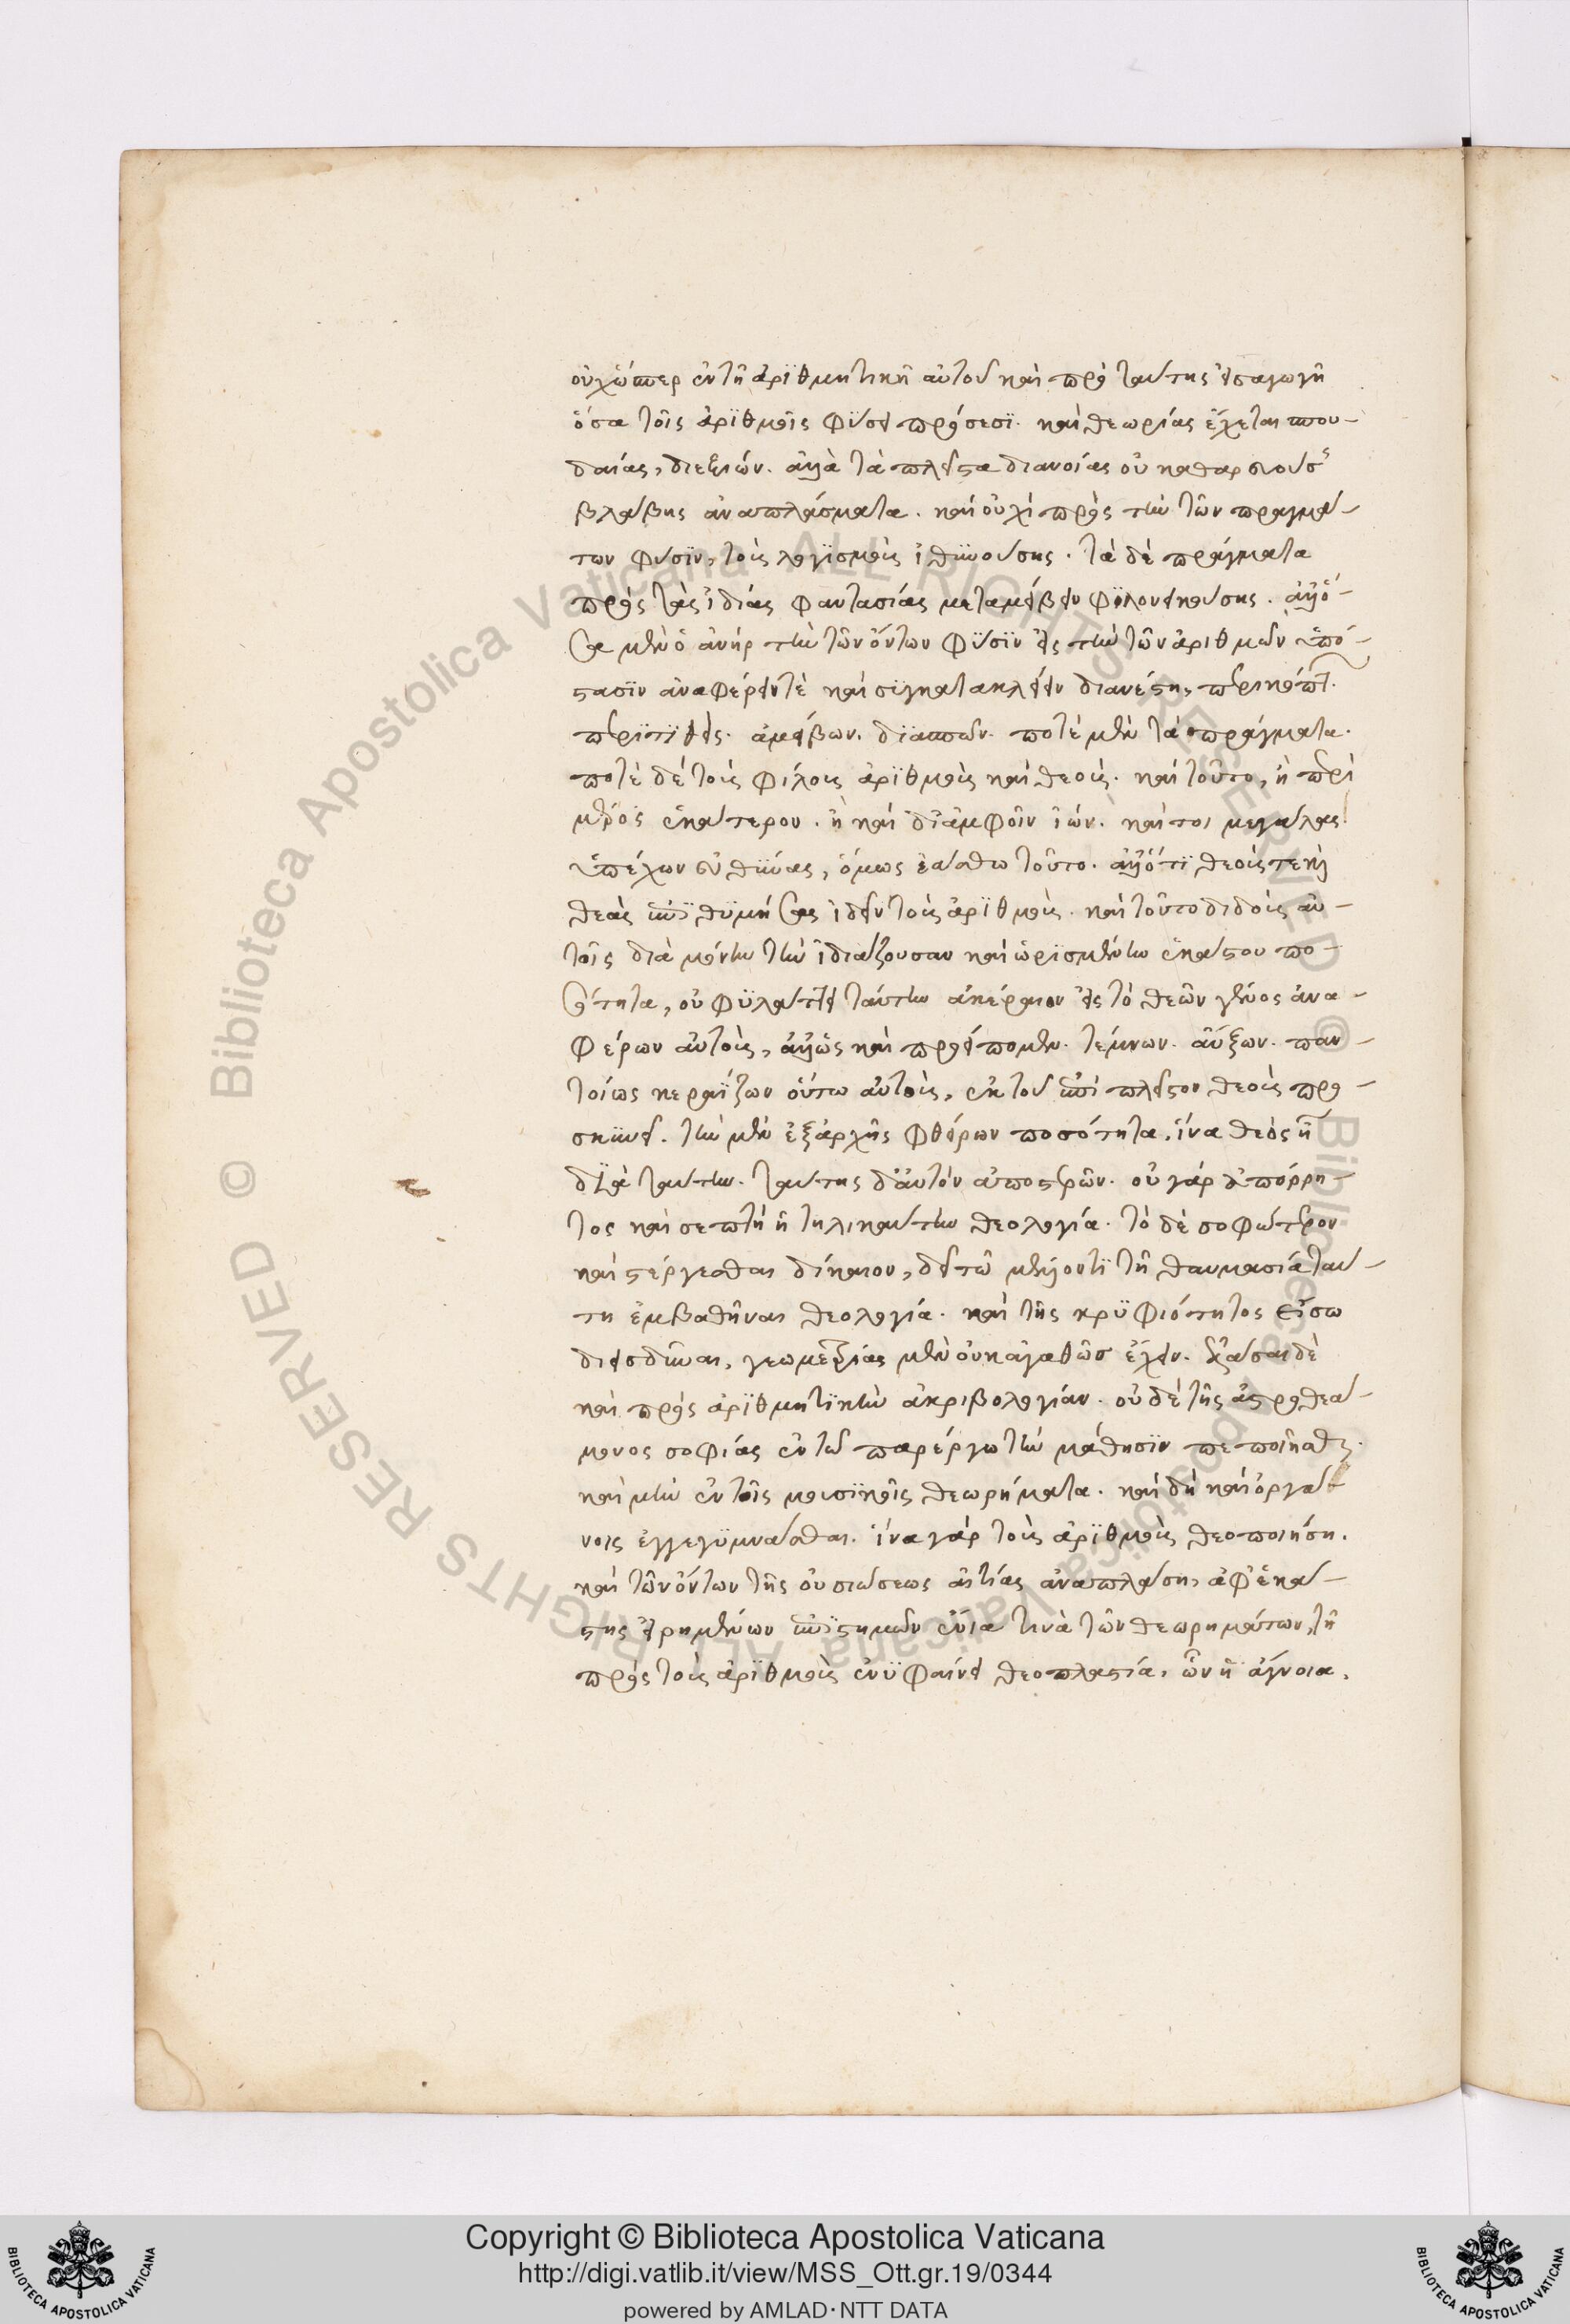 οὐχ ὥσπερ ἐν τῆ ἀρϊθμητικῆ αὐτοῦ καὶ πρὸ ταύτης εἰσαγωγῆ
ὅσα τοῖς ἀρϊθμοῖς φύσει πρόσεστϊ. καὶ θεωρίας ἔχεται σπου-
δαίας, διεξιών. ἀλλὰ τὰ πλεῖστα διανοίας οὐ καθαρευούσης
βλάβης ἀναπλάσματα. καὶ οὐχὶ πρὸς τὴν τῶν πραγμά-
των φύσϊν, τοὺς λογϊσμοὺς ἰθϋνούσης. τὰ δὲ πράγματα
πρὸς τὰς ἰδίας φαντασίας μεταμείβειν φϊλονεικούσης. ἀλλ' ὅ-
σα μὲν ὁ ἀνὴρ τὴν τῶν ὄντων φύσϊν εἰς τὴν τῶν ἀριθμῶν ὑπό-
στασϊν ἀναφέρειν τὲ καὶ συγκατακλείειν διανέστη, περικόπτ.
περϊτϊθεὶς. ἀμείβων. διασπῶν. ποτὲ μὲν τὰ πράγματα.
ποτὲ δὲ τοὺς φίλους ἀρϊθμοὺς καὶ θεούς. καὶ τοῦτο, ἢ περὶ
μέρος ἑκάτερον. ἢ καὶ δι' ἀμφοῖν ἰών. καίτοι μεγάλας
ὑπέχων εὐθύνας, ὅμως ἐάσθω τοῦτο. ἀλλ' ὅτϊ θεοὺς τε καὶ
θεὰς ἐπϊθϋμήσας ἰδεῖν τοὺς ἀρϊθμοὺς. καὶ τοῦτο διδοὺς αὐ-
τοῖς διὰ μόνην τὴν ἰδιάζουσαν καὶ ὡρϊσμένην ἑκάστου πο-
σότητα, οὐ φϋλάττει ταύτην ἀκέραιον εἰς τὸ θεῶν γένος ἀνα-
φέρων αὐτούς, ἀλλ' ὡς καὶ προείπομεν. τέμνων. αὔξων. παν-
τοίως κεραΐζων οὕτω αὐτοὺς, ἐκ τοῦ ἐπὶ πλεῖστον θεοὺς προ-
σκϋνεῖ. τὴν μὲν ἐξ ἀρχῆς φθείρων ποσότητα, ἵνα θεὸς ἦ
δϊὰ ταύτην. ταύτης δ' αὐτὸν ἀποστερῶν. οὐ γὰρ ἀπόρρη-
τος καὶ σεπτὴ ἡ τηλικαύτη θεολογία. τὸ δὲ σοφώτερον
καὶ στέργεσθαι δίκαιον, δεῖ τῶ μέλλοντϊ τῆ θαυμασία ταύ-
τη ἐμβαθῆναι θεολογία. καὶ τῆς κρϋφιότητος εἴσω
διεισδῦναι, γεωμετρίας μὲν οὐκ ἀγαθῶσ ἔχειν. δι
καὶ πρὸς ἀρϊθμητϊκὴν ἀκριβολογίαν. οὐδὲ τῆς ἀστροθεά-
μονος σοφίας ἐν τῶ παρέργω τὴν μάθησϊν πεποιῆσθαι.
καὶ μὴν ἐν τοῖς μουσϊκοῖς θεωρήμασι. καὶ δὴ καὶ ὀργά-
νοις ἐγγεγϋμνάσθαι. ἵνα γὰρ τοὺς ἀρϊθμοὺς θεοποιήση.
καὶ τῶν ὄντων τῆς οὐσιώσεως αἰτίας ἀναπλάση, ἀφ' ἑκά-
στης εἰρημένων ἐπϊστημῶν ἔνια τινὰ τῶν θεωρημάτων, τῆ
πρὸς τοὺς ἀρϊθμοὺς ἐνϋφαίνει θεοπλαστία, ὧν ἡ ἄγνοια,
Copyright © Biblioteca Apostolica Vaticana
http://digi.vatlib.it/view/MSS_Ott.gr.19/0344
powered by AMLAD·NTT DATA